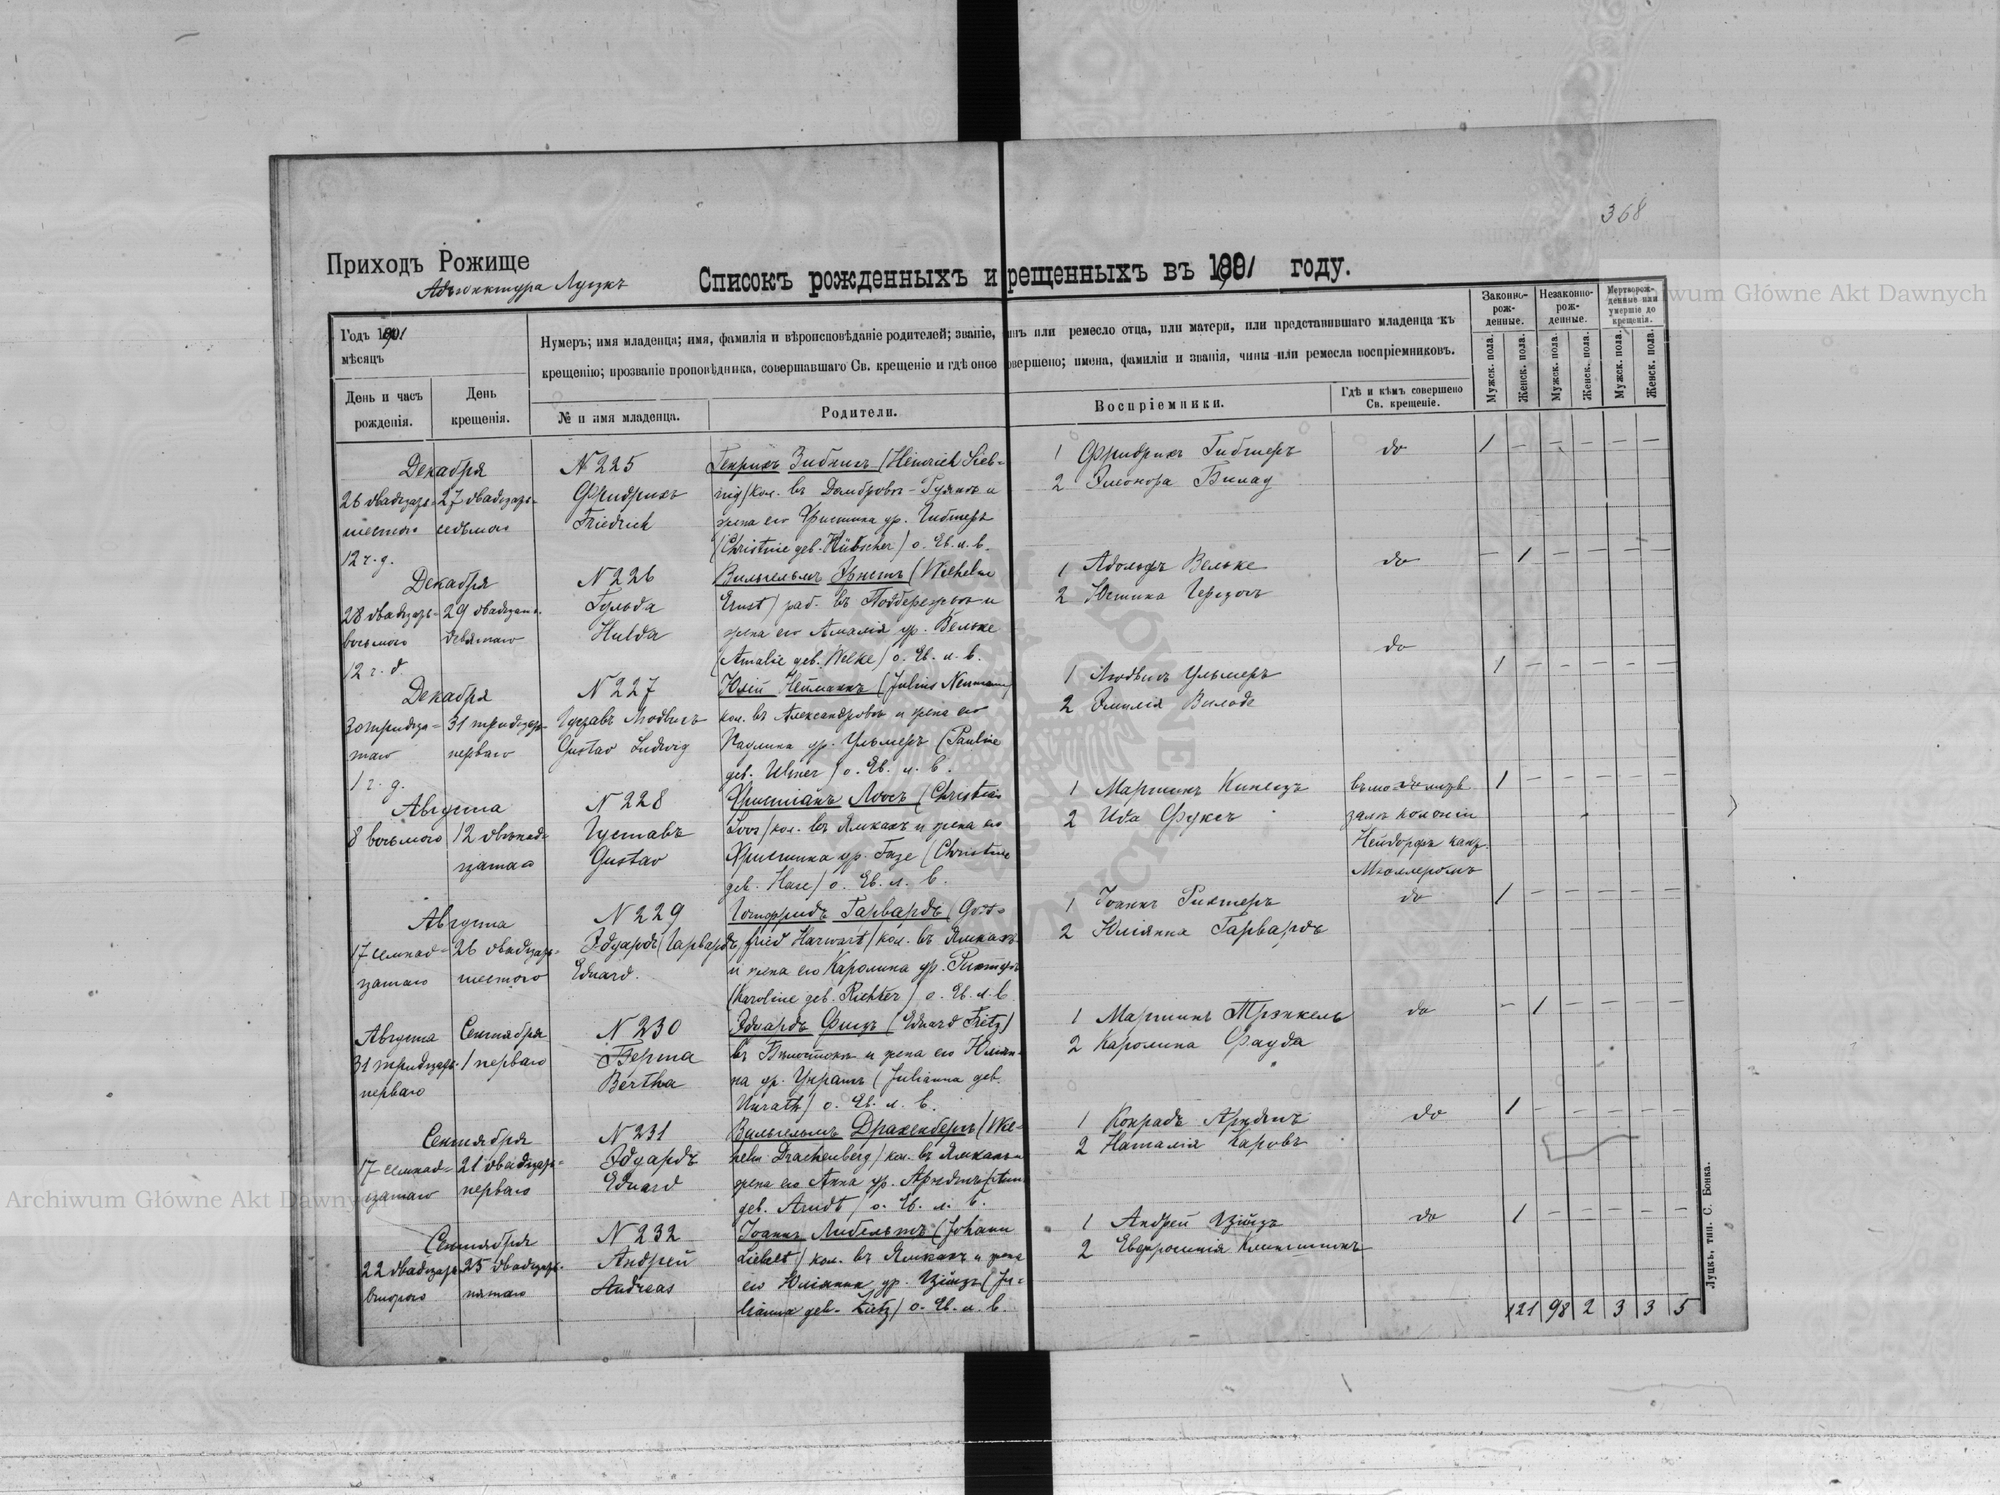 368
Приходъ Рожище
Адъюнктура Луцкъ
Списокъ рожденныхъ и рещенныхъ въ 1901 году.
Годъ 1901
мѣсяцъ
Нумеръ; имя младенца; имя, фамилія и вѣроисповѣданіе родителей; званіе, инъ или ремесло отца, или матери, или представившаго младенца къ
крещенію; прозваніе проповѣдника, совершавшаго Св. крещеніе и гдѣ оное овершено; имена, фамиліи и званія, чины или ремесла воспріемниковъ.
Законно-
рож-
денные.
Незаконно-
рож-
денные.
Мертворож-
денные или
умершіе до
крещенія.
День и часъ
рожденія.
День
крещенія.
№ и имя младенца.
Родители.
Воспріемники.
Гдѣ и кѣмъ совершено
Св. крещеніе.
Мужск. пола.
Женск. пола.
Мужск. пола.
Женск. пола.
Мужск. пола.
Женск. пола.
Декабря
26 двадцать-
шестаго
12 ч. д.
27 двадцать-
седьмого
N 225
Фридрихъ
Friedrich
Генрихъ Зибнигъ (Heinrich Sieb-
nig) кол. въ и
жена его Христина ур. Гибшеръ
(Christine geb. Hübscher) о. Ев. л. в.
1 Фридрихъ Гибшеръ
2 Элеонора
do
1 — — — — —
Декабря
28 двадцать-
восьмого
12 ч. д.
29 двадцать-
девятаго
N 226
Гульда
Hulda
Вильгельмъ Эрнстъ (Wilhelm
Ernst) раб. въ Подбережьѣ и
жена его Амалія ур. Вельке
(Amalie geb. Welke) о. Ев. л. в.
1 Адольфъ Вельке
2 Юстина
do
— 1 — — — —
Декабря
30 тридца-
таго
1 ч. д.
31 тридцать
перваго
N 227
Густавъ Людвигъ
Gustav Ludwig
Юлій Нейманнъ (Julius Neumann)
кол. въ Александровкѣ и жена его
Паулина ур. Ульмеръ (Pauline
geb. Ulmer) о. Ев. л. в.
1 Людвигъ Ульмеръ
2 Эмилія
do
1 — — — — —
Августа
8 восьмого
12 двѣнад-
цатаго
N 228
Густавъ
Gustav
Христіанъ Лоосъ (Christian
Loos) кол. въ Ямкахъ и жена его
Христина ур. Газе (Christine
geb. Hase) о. Ев. л. в.
1 Мартинъ
2 Ида Фуксъ
въ мо
залѣ колоніи
Нейдорфъ
Мюллеромъ
1 — — — — —
Августа
17 семнад-
цатаго
26 двадцать-
шестого
N 229
Эдуардъ (Гарвардъ)
Eduard.
Готфридъ Гарвардъ (Gott-
fried Harwart) кол. въ Ямкахъ
и жена его Каролина ур. Рихтеръ
(Karoline geb. Richter) о. Ев. л. в.
1 Іоаннъ Рихтеръ
2 Юліанна Гарвардъ
do
1 — — — — —
Августа
31 тридцать-
перваго
Сентября
1 перваго
N 230
Берта
Bertha
Эдуардъ Фицъ (Eduard Fietz)
въ Бѣлостокѣ и жена его Юліан-
на ур. Унратъ (Julianna geb.
Unrath) о. Ев. л. в.
1 Мартинъ Трэнкель
2 Каролина Фауда
do
— 1 — — — —
Сентября
17 семнад-
цатаго
21 двадцать-
перваго
N 231
Эдуардъ
Eduard
Вильгельмъ Дракенбергъ (Wil-
helm Drachenberg) кол. въ Ямкахъ и
жена его Анна ур. Арндтъ (Anna
geb. Arndt) о. Ев. л. в.
1 Конрадъ Арндтъ
2 Наталія Каровъ
do
1 — — — — —
Сентября
22 двадцать
второго
25 двадцать-
пятаго
N 232
Андрей
Andreas
Іоаннъ Либельтъ (Johann
Liebelt) кол. въ Ямкахъ и жена
его Юліанна ур. Цѣцъ (Ju-
lianna geb. Zietz) о. Ев. л. в.
1 Андрей Цѣцъ
2 Евфросинія
do
1 — — — — —
121 98 2 3 3 5
Луцкъ, тип. С. Бонка.
Archiwum Główne Akt Dawnych
iwum Główne Akt Dawnych